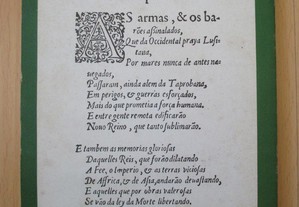 AS armas, & os ba-
rões assinalados,
Que da Occidental praya Lusi-
tana,
Por mares nunca de antes na-
uegados,
Passaram, ainda alem da Taprobana,
Em perigos, & guerras esforçados,
Mais do que prometia a força humana.
E entre gente remota edificarão
Nouo Reino, que tanto sublimarão.
E tambem as memorias gloriosas
Daquelles Reis, que forão dilatando
A Fee, o Imperio, & as terras viciosas
De Affrica, & de Asia, andarão deuastando,
E aquelles que por obras valerosas
Se vão da ley da Morte libertando.